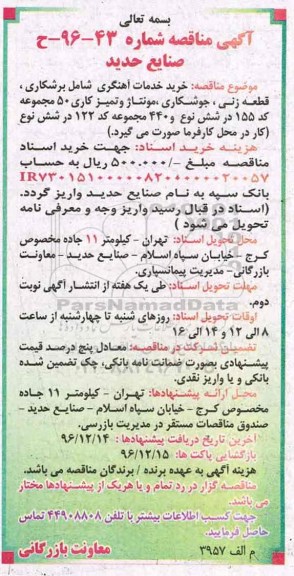 بسمه تعالی
آگهی مناقصه شماره ۴۳-۹۶-ح
صنایع حدید
موضوع مناقصه: خرید خدمات آهنگری شامل برشکاری ،
قطعه زنی ، جوشکاری ،مونتاژ وتمیز کاری ۵۰ مجموعه
کد ۱۵۵ در شش نوع و۴۴۰ مجموعه کد ۱۲۲ در شش نوع
(کار در محل کارفرما صورت می گیرد.)
هزینه خرید اسناد: جهت خرید اسناد
مناقصه مبلغ -/۵۰۰.۰۰۰ ریال به حساب
بانک سپه به نام صنایع حدید واریز گردد.
(اسناد در قبال رسید واریز وجه و معرفی نامه
تحویل می شود )
محل تحویل اسناد: تهران - کیلومتر ۱۱ جاده مخصوص
کرج -خیابان سپاه اسلام - صنایع حدید - معاونت
بازرگانی - مدیریت پیمانسپاری.
مهلت تحویل اسناد: طی یک هفته از انتشار آگهی نوبت
دوم.
ParsNamadData
اوقات تحویل اسناد: روزهای شنبه تا چهارشنبه از ساعت
۸ الی ۱۲ و ۱۴ الی ۱۶
تضمین شرکت در مناقصه: معادل پنج درصد قیمت
پیشنهادی بصورت ضمانت نامه بانکی، چک تضمین شده
بانکی و یا واریز نقدی.
محل ارائه پیشنهادها: تهران - کیلومتر ۱۱ جاده
مخصوص کرج - خیابان سپاه اسلام - صنایع حدید -
صندوق مناقصات مستقر در مدیریت بازرسی.
آخرین تاریخ دریافت پیشنهادها : ۹۶/۱۲/۱۴
بازگشایی پاکت ها: ۹۶/۱۲/۱۵
هزینه آگهی به عهده برنده / برندگان مناقصه می باشد.
مناقصه گزار در رد تمام و یا هریک از پیشنهادها مختار
می باشد.
جهت کسب اطلاعات بیشتر با تلفن ۴۴۹۰۸۸۰۸ تماس
حاصل فرمایید.
م الف ۳۹۵۷
معاونت بازرگانی